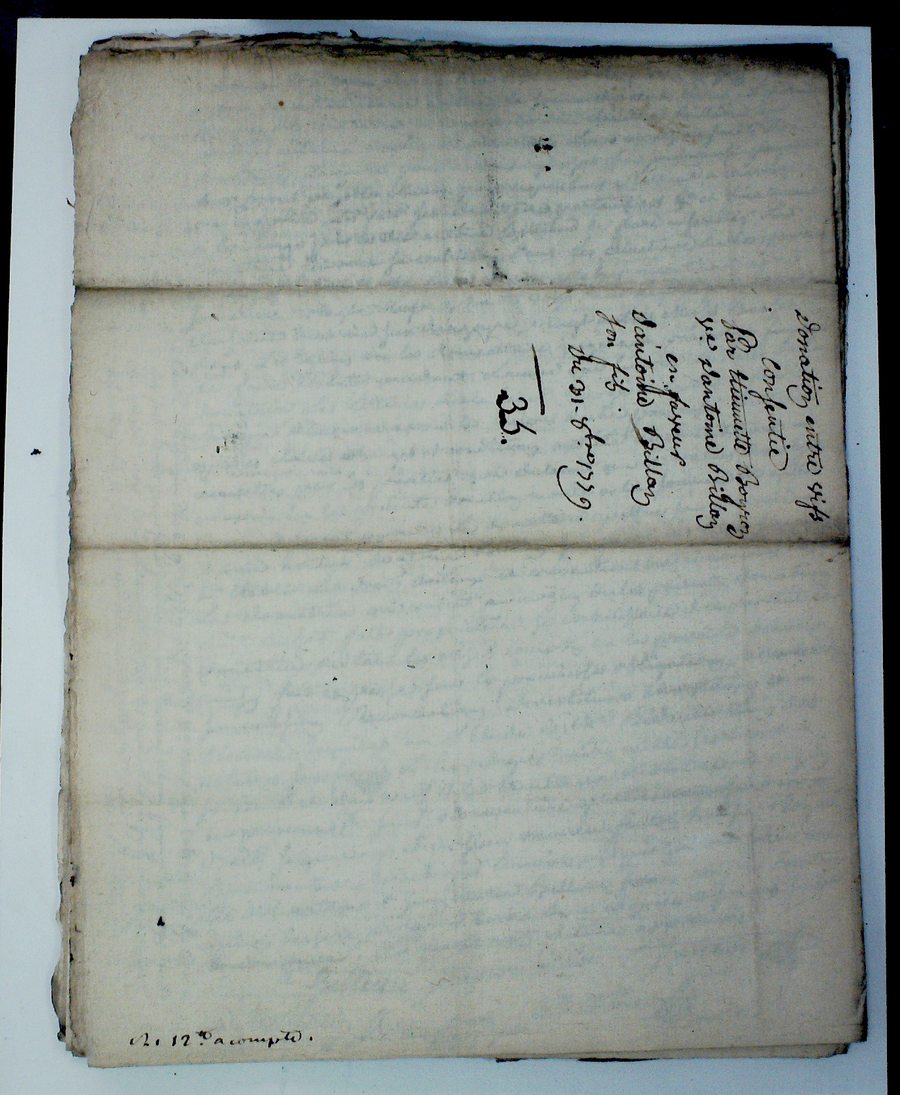 Donation entre vifs
Consentie
Par Thiennette Bogroz
v.e d'antoine Billaz
en faveur
d'antoine Billaz
son fils.
Du 31. 8bre 1779.
35.
R. 12 # acompte.